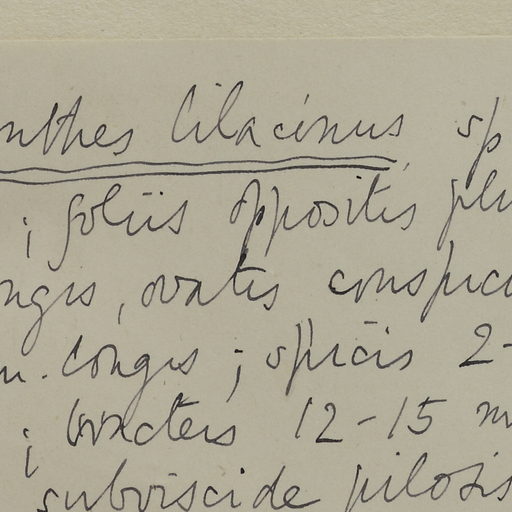 nthes lilacinus, sp
; foliis oppositis plu
ongis, ovatis conspicu
m. longis ; spicis 2-
; bracteis 12-15 m
subviscide pilosis